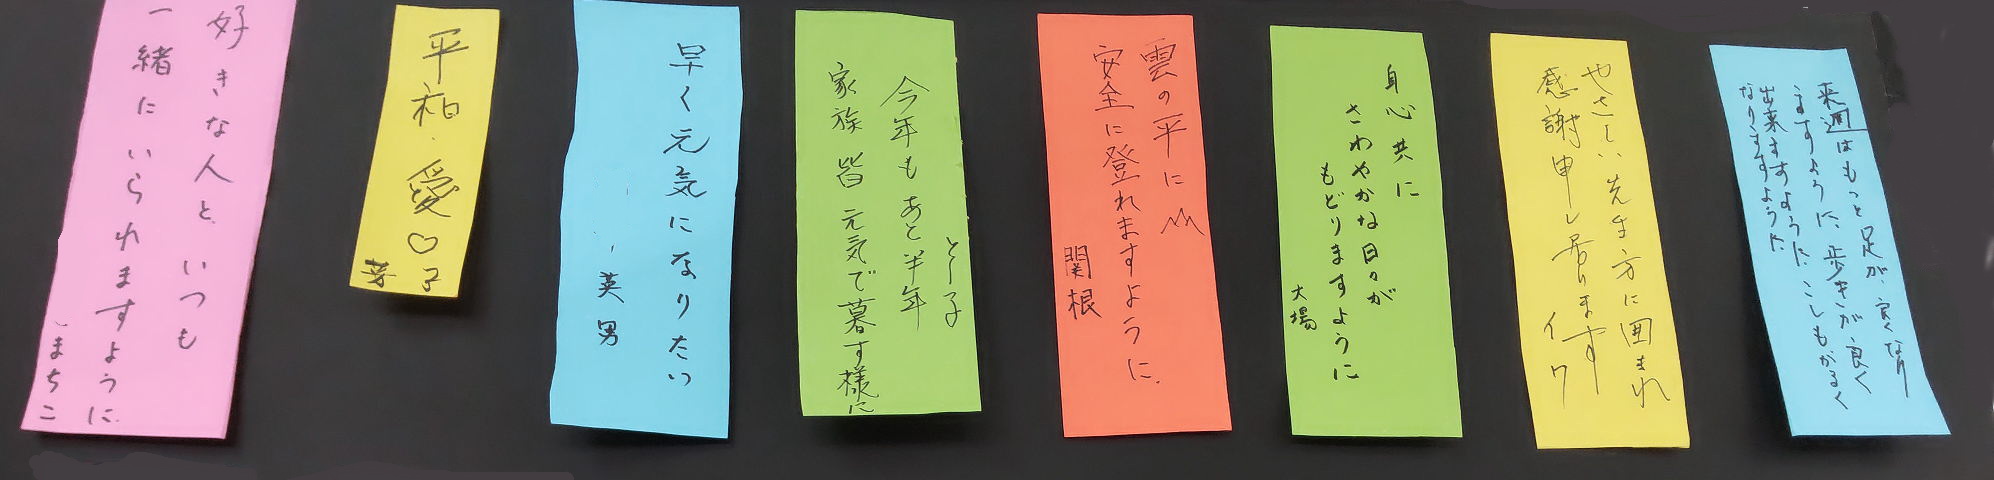 好きな人と、いつも
一緒にいられますように。
まちこ
平和・愛♡
芳子
早く元気になりたい
英男
今年もあと半年
家族皆元気で暮す様に
とし子
雲の平に
安全に登れますように。
関根
身心共に
さわやかな日々が
もどりますように
大場
やさしい先生方に囲まれ
感謝申し居ります
イワ
来週はもっと足が、良くなり
ますように、歩きが良く
出来ますように、こしもかるく
なりますように